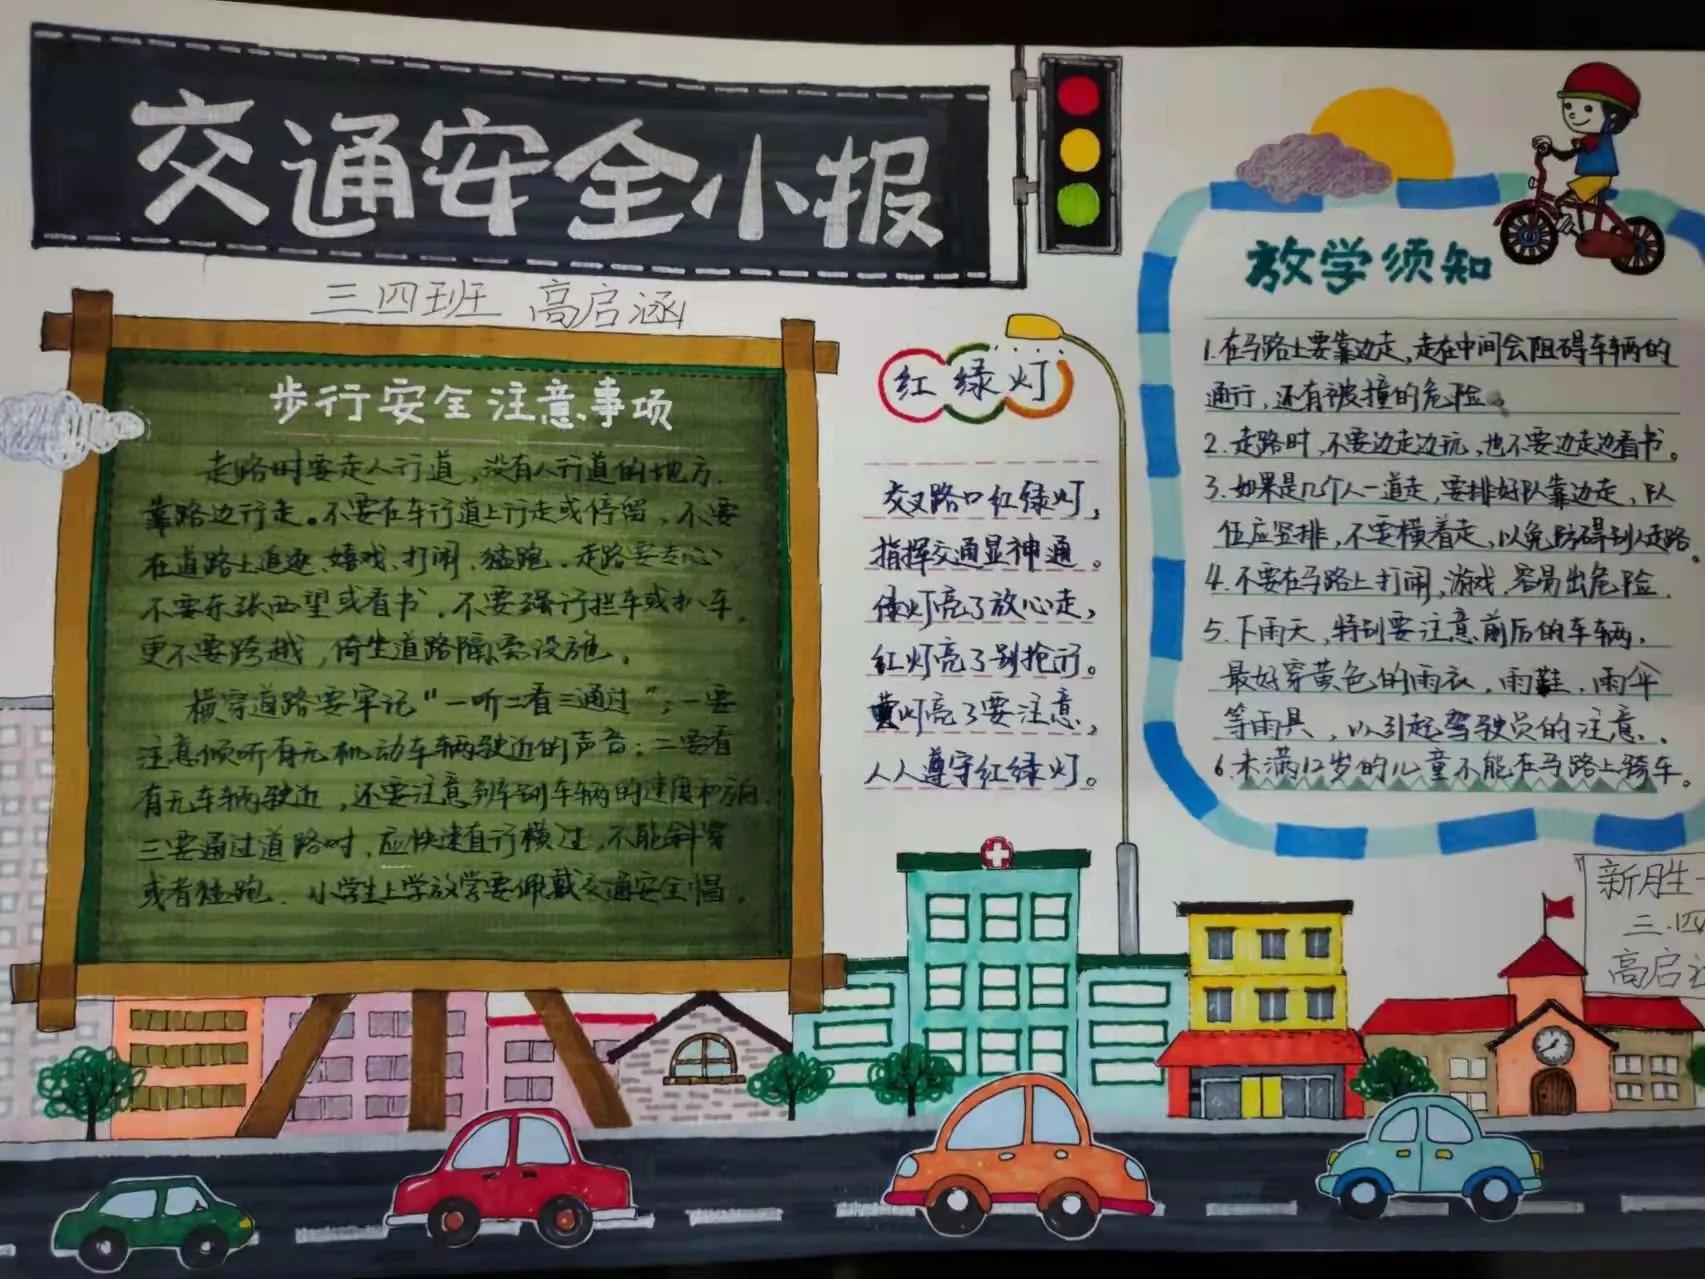 交通安全小报
三四班 高启涵
步行安全注意事项
走路时要走人行道，没有人行道的地方，
靠路边行走。不要在车行道上行走或停留，不要
在道路上追逐、嬉戏、打闹、猛跑。走路要专心
不要东张西望或看书，不要强行拦车或扒车，
更不要跨越，倚坐道路隔离设施。
横穿道路要牢记“一听二看三通过”；一要
注意倾听有无机动车辆驶近的声音；二要看
有无车辆驶近，还要注意车辆的速度和方向.
三要通过道路时，应快速直行横过，不能斜穿
或者猛跑. 小学生上学放学要佩戴交通安全帽.
红绿灯
交叉路口红绿灯，
指挥交通显神通。
绿灯亮了放心走，
红灯亮了别抢行。
黄灯亮了要注意，
人人遵守红绿灯。
放学须知
1.在马路上要靠边走，走在中间会阻碍车辆的
通行，还有被撞的危险。
2.走路时，不要边走边玩，也不要边走边看书。
3.如果是几个人一道走，要排好队靠边走，队
伍应竖排，不要横着走，以免防碍别人走路。
4.不要在马路上打闹，游戏，容易出危险.
5.下雨天，特别要注意前后的车辆，
最好穿黄色的雨衣，雨鞋，雨伞
等雨具，以引起驾驶员的注意.
6.未满12岁的儿童不能在马路上骑车。
新胜一
三.四
高启